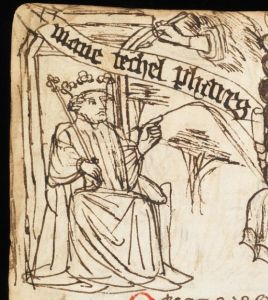 mane techel phares